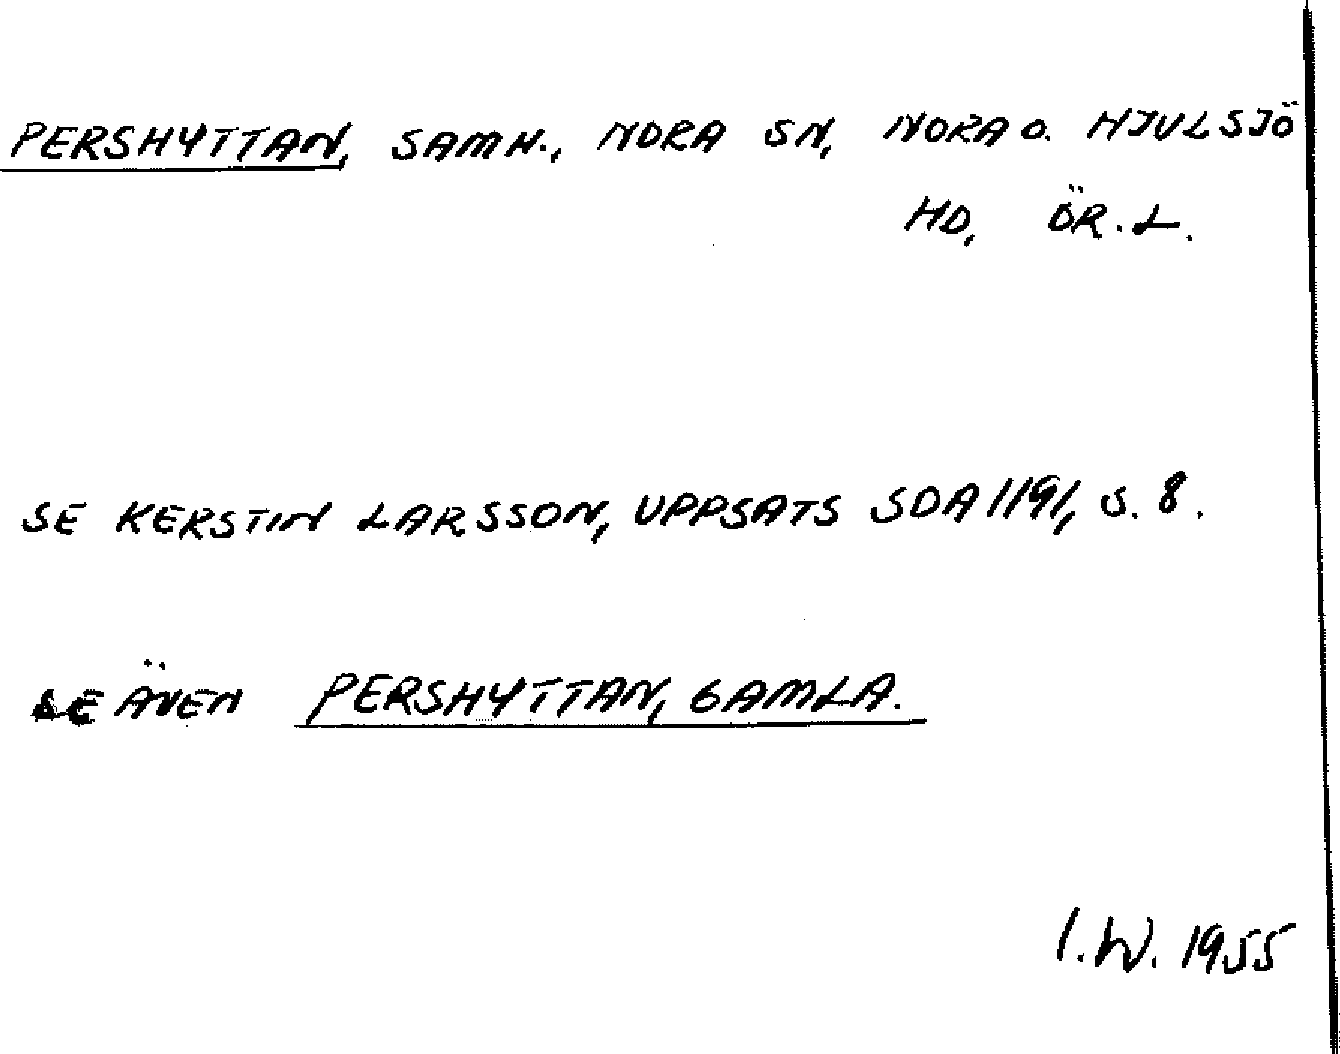 PERSHYTTAN, SAMH., NORA SN, NORA O. HJULSJÖ
HD, ÖR. L.
SE KERSTIN LARSSON, UPPSATS SOA 1191, S. 8.
SE ÄVEN PERSHYTTAN, GAMLA.
I.W. 1955